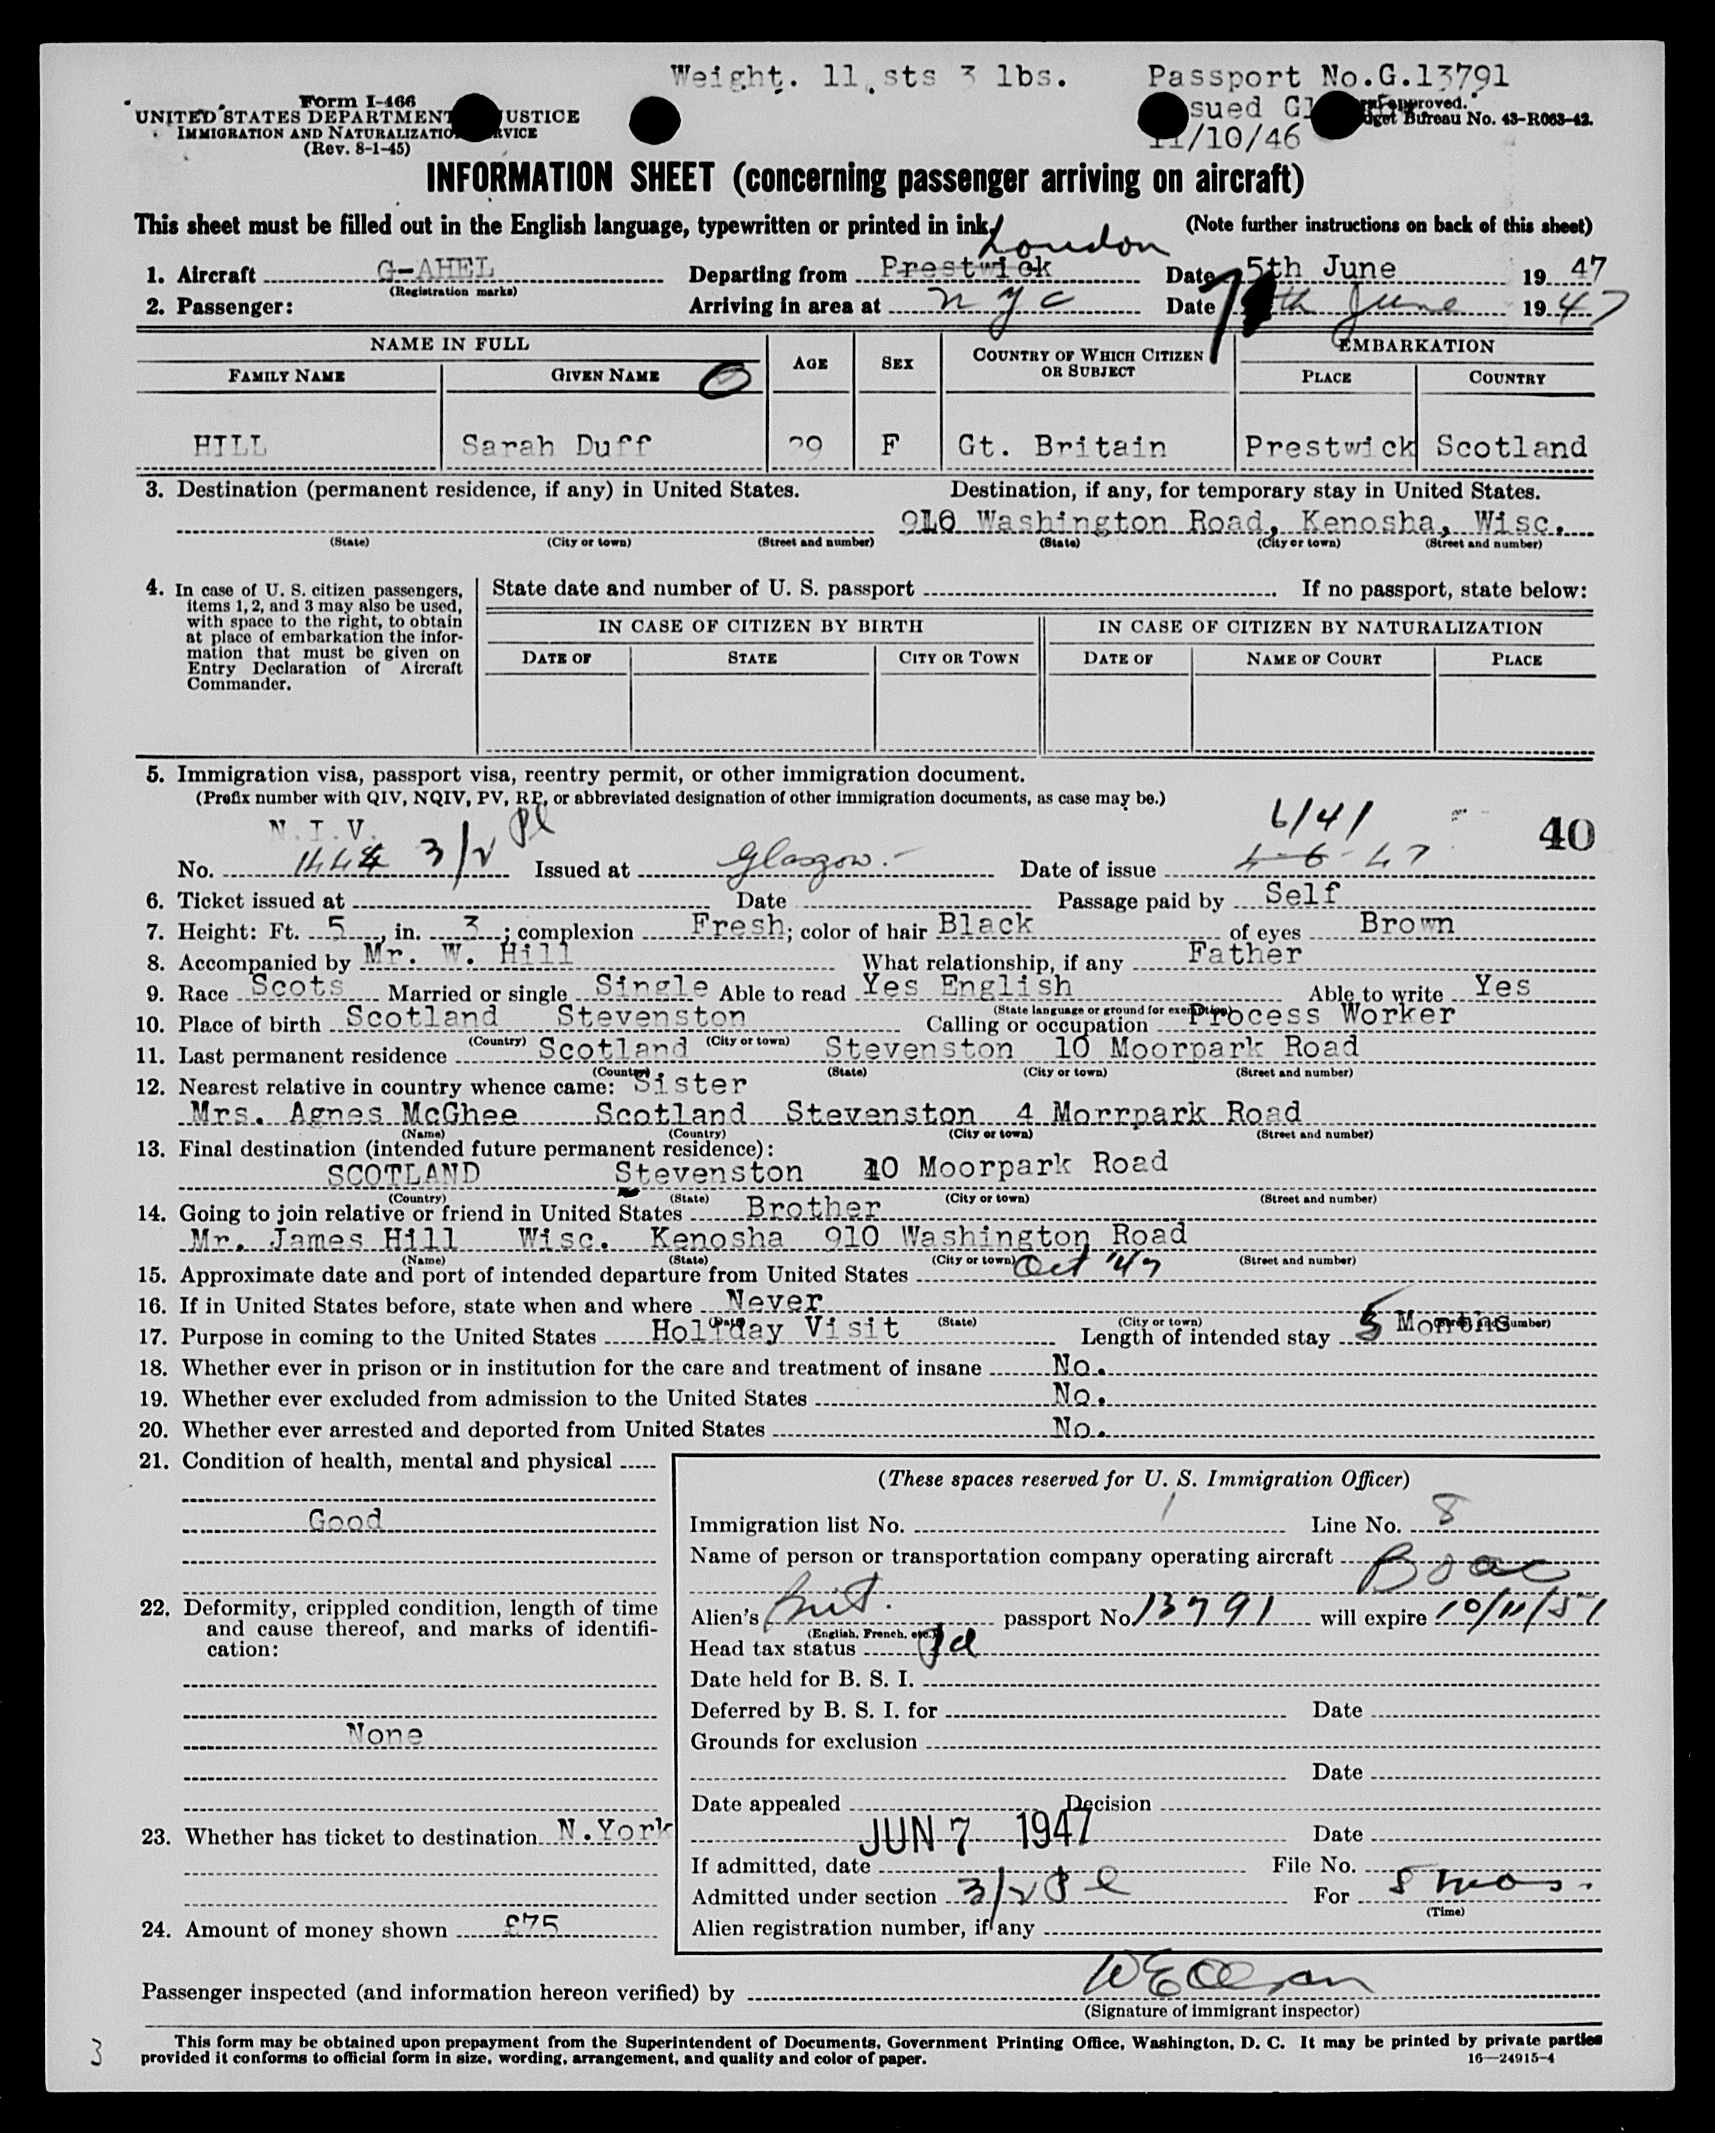 Weight. 11 sts 3 lbs. Passport No.G.13791
Form I-466
UNITED STATES DEPARTMENT JUSTICE
IMMIGRATION AND NATURALIZATION
(Rev. 8-1-45)
approved.
Bureau No. 43-R063-42.
11/10/46
INFORMATION SHEET (concerning passenger arriving on aircraft)
This sheet must be filled out in the English language, typewritten or printed in ink. (Note further instructions on back of this sheet)
London
1. Aircraft G-AHEL Departing from Prestwick Date 5th June 1947
(Registration marks)
2. Passenger: Arriving in area at nyc Date 7th June 1947
NAME IN FULL AGE SEX COUNTRY OF WHICH CITIZEN OR SUBJECT EMBARKATION
FAMILY NAME GIVEN NAME PLACE COUNTRY
HILL Sarah Duff 29 F Gt. Britain Prestwick Scotland
3. Destination (permanent residence, if any) in United States. Destination, if any, for temporary stay in United States.
910 Washington Road, Kenosha, Wisc.
(State) (City or town) (Street and number) (State) (City or town) (Street and number)
4. In case of U. S. citizen passengers, items 1, 2, and 3 may also be used, with space to the right, to obtain at place of embarkation the information that must be given on Entry Declaration of Aircraft Commander.
State date and number of U. S. passport If no passport, state below:
IN CASE OF CITIZEN BY BIRTH IN CASE OF CITIZEN BY NATURALIZATION
DATE OF STATE CITY OR TOWN DATE OF NAME OF COURT PLACE
5. Immigration visa, passport visa, reentry permit, or other immigration document.
(Prefix number with QIV, NQIV, PV, RP, or abbreviated designation of other immigration documents, as case may be.)
N.I.V. 3/2 Pl 6/41 40
No. 1448 Issued at Glasgow. Date of issue 4-6-47
6. Ticket issued at Date Passage paid by Self
7. Height: Ft. 5, in. 3; complexion Fresh; color of hair Black of eyes Brown
8. Accompanied by Mr. W. Hill What relationship, if any Father
9. Race Scots Married or single Single Able to read Yes English Able to write Yes
(State language or ground for exemption)
10. Place of birth Scotland Stevenston Calling or occupation Process Worker
(Country) (City or town)
11. Last permanent residence Scotland Stevenston 10 Moorpark Road
(Country) (State) (City or town) (Street and number)
12. Nearest relative in country whence came: Sister
Mrs. Agnes McGhee Scotland Stevenston 4 Morrpark Road
(Name) (Country) (City or town) (Street and number)
13. Final destination (intended future permanent residence):
SCOTLAND Stevenston 10 Moorpark Road
(Country) (State) (City or town) (Street and number)
14. Going to join relative or friend in United States Brother
Mr. James Hill Wisc. Kenosha 910 Washington Road
(Name) (State) (City or town) (Street and number)
15. Approximate date and port of intended departure from United States Oct '47
16. If in United States before, state when and where Never
(Date) (State) (City or town) (Street and number)
17. Purpose in coming to the United States Holiday Visit Length of intended stay 5 Months
18. Whether ever in prison or in institution for the care and treatment of insane No.
19. Whether ever excluded from admission to the United States No.
20. Whether ever arrested and deported from United States No.
21. Condition of health, mental and physical
Good
22. Deformity, crippled condition, length of time and cause thereof, and marks of identification:
None
23. Whether has ticket to destination N.York
24. Amount of money shown £75
(These spaces reserved for U. S. Immigration Officer)
Immigration list No. 1 Line No. 8
Name of person or transportation company operating aircraft Boac
Alien's Brit. passport No. 13791 will expire 10/11/51
(English, French, etc.)
Head tax status Pd
Date held for B. S. I.
Deferred by B. S. I. for Date
Grounds for exclusion
Date
Date appealed Decision
JUN 7 1947 Date
If admitted, date File No.
Admitted under section 3/2 Pl For 5 mos.
(Time)
Alien registration number, if any
Passenger inspected (and information hereon verified) by
(Signature of immigrant inspector)
This form may be obtained upon prepayment from the Superintendent of Documents, Government Printing Office, Washington, D. C. It may be printed by private parties
provided it conforms to official form in size, wording, arrangement, and quality and color of paper. 16—24915-4
3